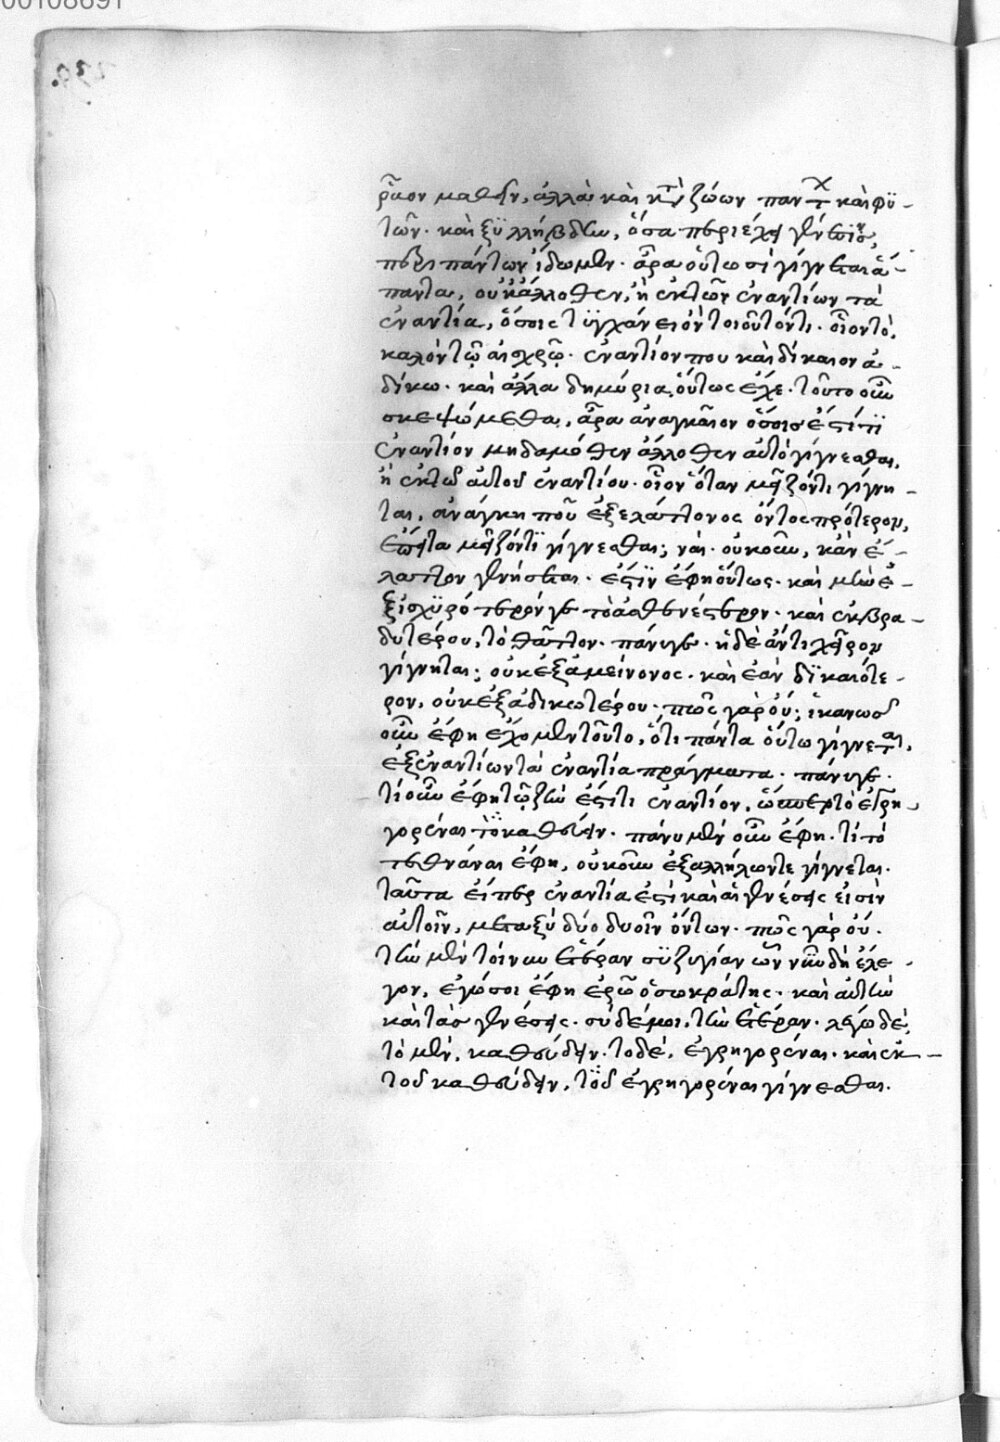 00108691
ρᾶον μαθεῖν, ἀλλὰ καὶ κατὰ ζώων πάντων καὶ φυ-
τῶν· καὶ ξυλλήβδην, ὅσα περ ἔχει γένεσιν,
περὶ πάντων ἴδωμεν· ἆρα οὑτωσὶ γίγνεται ἅ-
παντα, οὐκ ἄλλοθεν, ἢ ἐκ τῶν ἐναντίων τὰ
ἐναντία, ὅσοις τυγχάνει ὂν τοιοῦτόν τι· οἷον τὸ
καλὸν τῷ αἰσχρῷ· ἐναντίον που καὶ δίκαιον ἀ-
δίκω· καὶ ἄλλα δὴ μύρια οὕτως ἔχει· τοῦτο οὖν
σκεψώμεθα, ἆρα ἀναγκαῖον ὅσοις ἐστί τι
ἐναντίον μηδαμόθεν ἄλλοθεν αὐτὸ γίγνεσθαι,
ἢ ἐκ τοῦ αὐτοῦ ἐναντίου· οἷον ὅταν μεῖζόν τι γίγνη-
ται, ἀνάγκη που ἐξ ἐλάττονος ὄντος πρότερον,
ἔπειτα μεῖζόν τι γίγνεσθαι; ναί· οὐκοῦν, κἂν ἔ-
λαττον γένηται· ἔστιν ἔφη οὕτως· καὶ μὴν ἐ-
ξ ἰσχυρότερόν γε τὸ ἀσθενέστερον· καὶ ἐκ βρα-
δυτέρου, τὸ θᾶττον· πάνυ γε· ἠ δὲ ἄντι χεῖρον
γίγνηται; οὐκ ἐξ ἀμείνονος· καὶ ἐὰν δικαιότε-
ρον, οὐκ ἐξ ἀδικωτέρου· πῶς γὰρ οὔ; ἱκανῶς
οὖν ἔφη ἔχομεν τοῦτο, ὅτι πάντα οὕτω γίγνεται,
ἐξ ἐναντίων τὰ ἐναντία πράγματα· πάνυ γε·
τί οὖν ἔφη τῷ ζῆν ἐστί τι ἐναντίον, ὥσπερ τὸ ἐγρη-
γορέναι τὸ καθεύδειν· πάνυ μὲν οὖν ἔφη· τί τὸ
τεθνάναι ἔφη, οὐκοῦν ἐξ ἀλλήλων τε γίγνεται
ταῦτα εἴπερ ἐναντία ἐστὶ καὶ αἱ γενέσεις εἰσὶν
αὐτοῖν, μεταξὺ δύο δυοῖν ὄντων· πῶς γὰρ οὔ·
τὴν μὲν τοίνυν ἑτέραν συζυγίαν ὧν νῦν δὴ ἔλε-
γον, ἐγώ σοι ἔφη ἐρῶ ὁ σωκράτης· καὶ αὐτὴν
καὶ τὰς γενέσεις· σὺ δέ μοι, τὴν ἑτέραν· λέγω δὲ
τὸ μὲν, καθεύδειν· τὸ δέ, ἐγρηγορέναι· καὶ ἐκ
τοῦ καθεύδειν, τὸ ἐγρηγορέναι γίγνεσθαι.